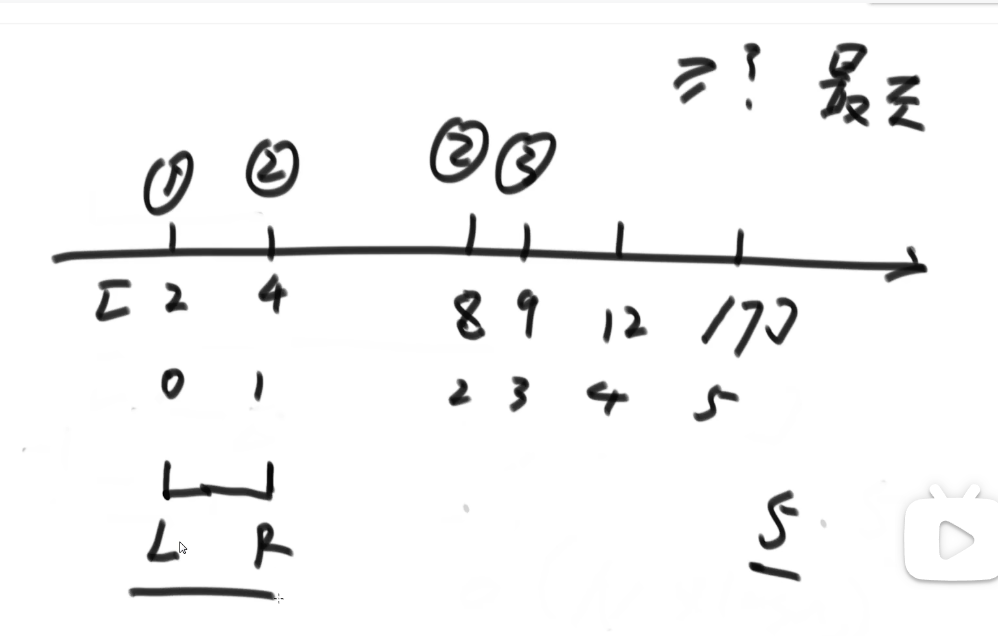 ≥? 最左
① ② ② ③
[2 4 8 9 12 17]
0 1 2 3 4 5
L R
5